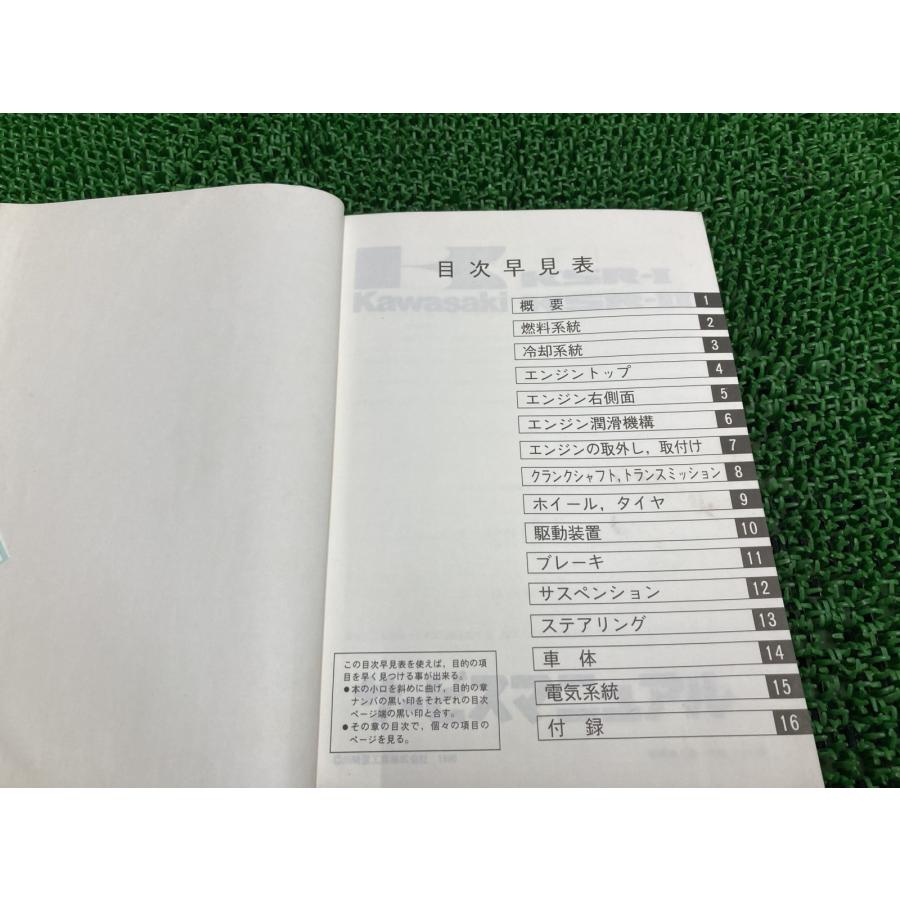 目次早見表
Kawasaki
概要 1
燃料系統 2
冷却系統 3
エンジントップ 4
エンジン右側面 5
エンジン潤滑機構 6
エンジンの取外し，取付け 7
クランクシャフト,トランスミッション 8
ホイール，タイヤ 9
駆動装置 10
ブレーキ 11
サスペンション 12
ステアリング 13
車体 14
電気系統 15
付録 16
この目次早見表を使えば，目的の項
目を早く見つける事が出来る。
●本の小口を斜めに曲げ，目的の章
ナンバの黒い印をそれぞれの目次
ページ端の黒い印と合す。
●その章の目次で，個々の項目の
ページを見る。